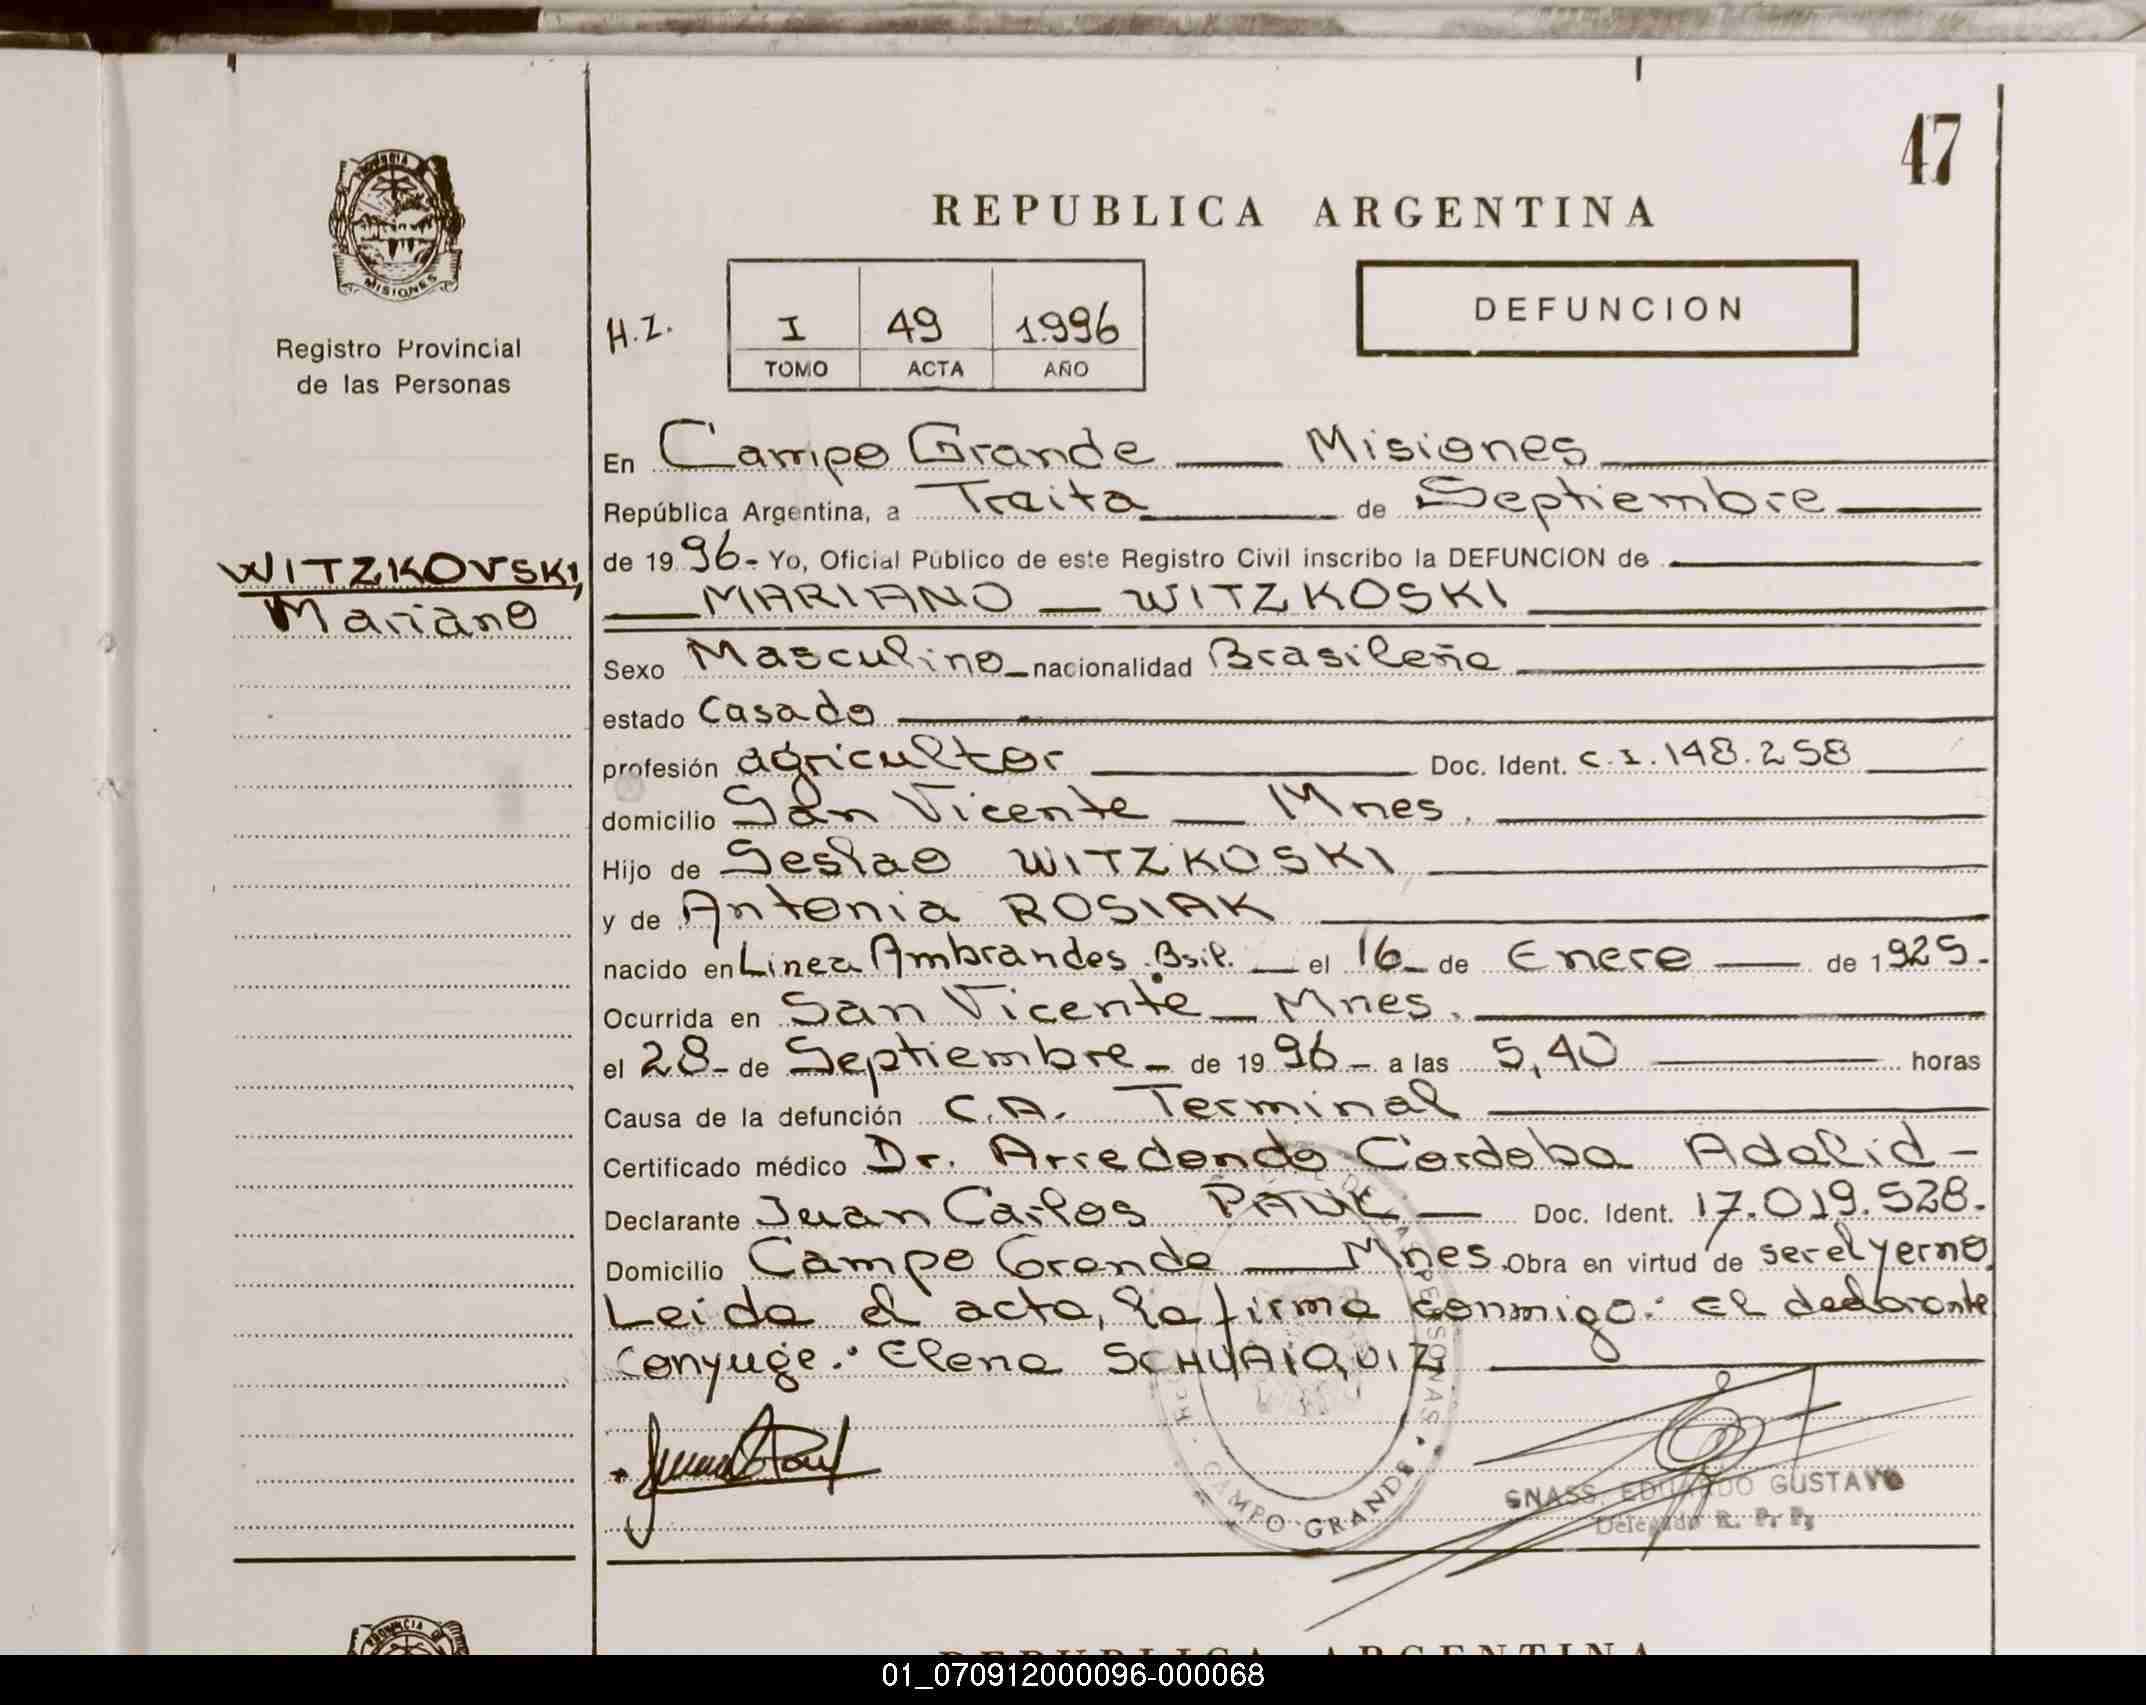 47
REPUBLICA ARGENTINA
DEFUNCION
PROVINCIA DE
MISIONES
Registro Provincial
de las Personas
H.I.
I 49 1.996
TOMO ACTA AÑO
En Campo Grande Misiones
República Argentina, a Treita de Septiembre
WITZKOVSKI,
Mariano
de 1996- Yo, Oficial Público de este Registro Civil inscribo la DEFUNCION de
MARIANO WITZKOSKI
Sexo Masculino nacionalidad Brasileña
estado Casado
profesión agricultor Doc. Ident. C.I.148.258
domicilio San Vicente Mnes.
Hijo de Seslao WITZKOSKI
y de Antonia ROSIAK
nacido en Linea Ambrandes Bsil. el 16 de Enero de 1925.
Ocurrida en San Vicente Mnes.
el 28 de Septiembre de 1996 a las 5,40 horas
Causa de la defunción C.A. Terminal
Certificado médico Dr. Arredondo Cordoba Adalid
Declarante Juan Carlos PAUL Doc. Ident. 17.019.528.
Domicilio Campo Grande Mnes. Obra en virtud de ser el yerno.
Leida el acta, la firma conmigo: el declarante
conyuge: Elena SCHUAIQUIZ
CAMPO GRANDE
GNASS, EDUARDO GUSTAVO
Delegado R. P. P.
REPUBLICA ARGENTINA
01_070912000096-000068